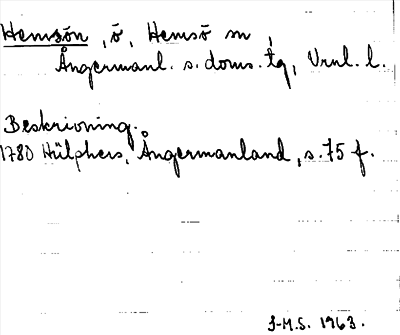 Hemsön, ö, Hemsö sn,
Ångermanl. s. doms. tg, Vrnl. l.
Beskrivning.
1780 Hülphers, Ångermanland, s. 75 f.
J-M.S. 1963.